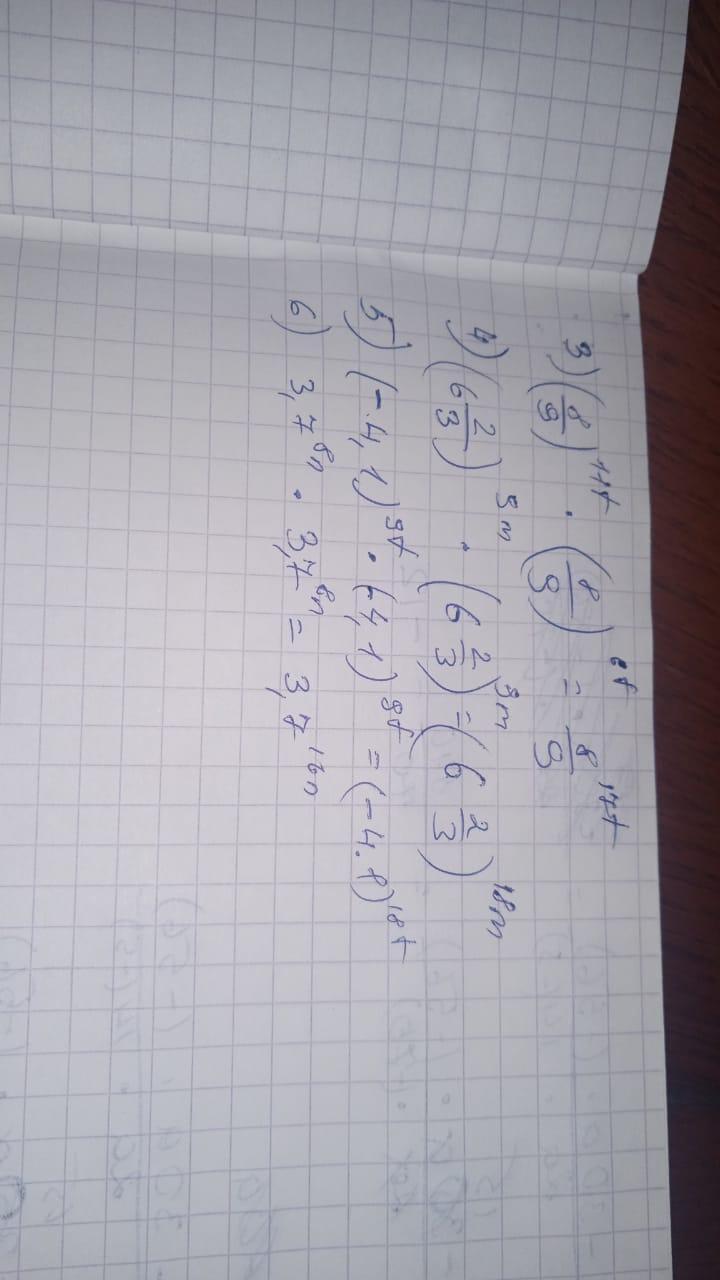 3) (8/9)^11t · (8/9)^6t = 8/9^17t
4) (6 2/3)^9m · (6 2/3)^9m = (6 2/3)^18m
5) (-4,1)^9t · (-4,1)^9t = (-4.8)^18t
6) 3,7^8n · 3,7^8n = 3,7^16n